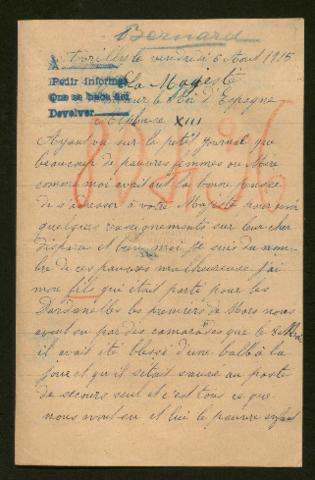 Bernard
Avrillé le vendredi 6 Aout 1915
A
Pedir informes
Que se haga del
Devolver
Sa Majesté
le Roi d'Espagne
Alphonse XIII
Ayant vu sur le petit journal que
beaucoup de pauvres femmes ou Mère
comme moi avait eut la bonne pensée
de s'adresser à votre Majesté pour avoir
quelques renseignements sur leur cher
disparu et bien moi je suis du nom-
bre de ces pauvres malheureuse j'ai
mon fils qui était parti pour les
Dardanelles les premiers de Mars nous
avont su par des camarades que le 8 Mai
il avait été blessé d'une balle à la
joue et qu'il setait sauvé au poste
de secours seul et c'est tous ce que
nous avont su et lui le pauvre enfant